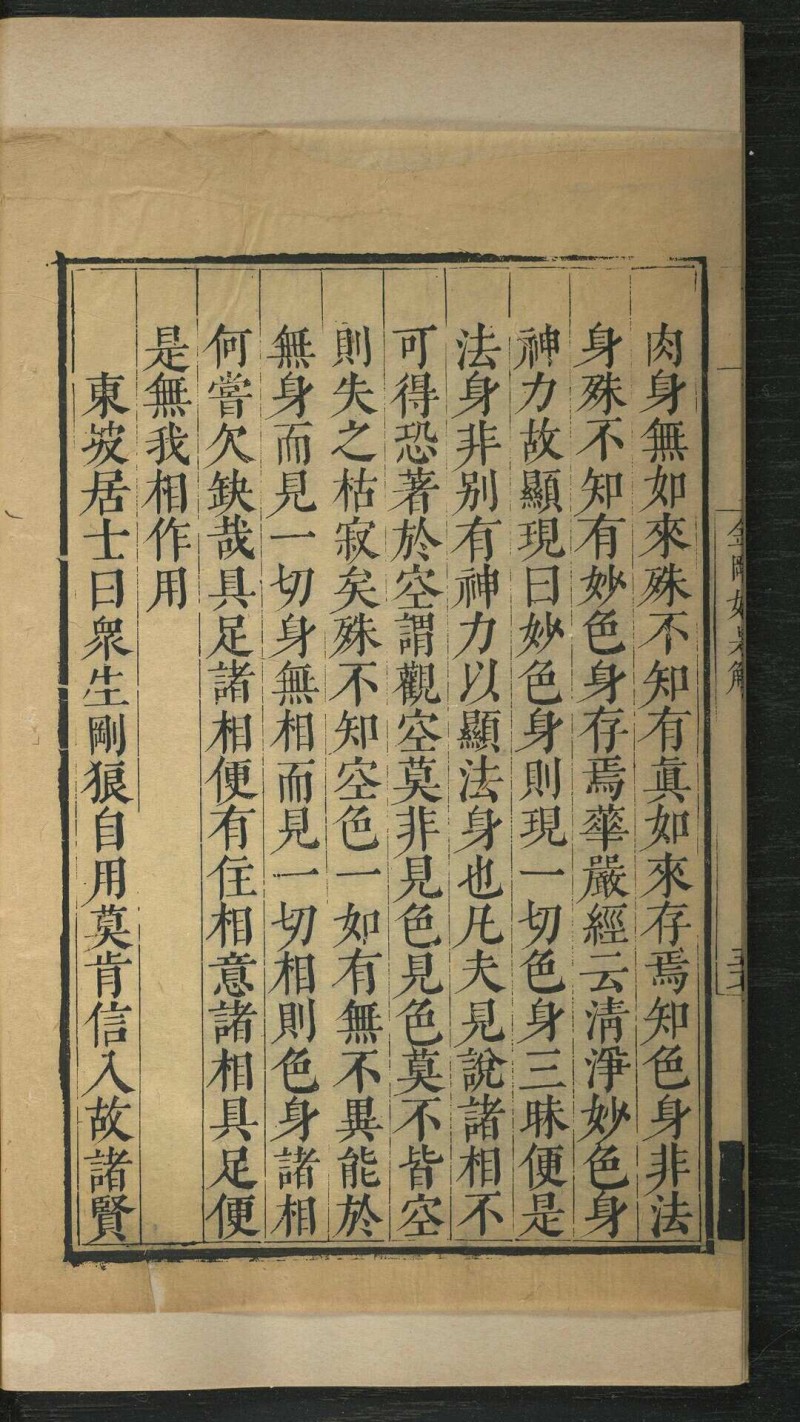 肉身無如來殊不知有眞如來存焉知色身非法
身殊不知有妙色身存焉華嚴經云淸淨妙色身
神力故顯現曰妙色身則現一切色身三昧便是
法身非别有神力以顯法身也凡夫見說諸相不
可得恐著於空謂觀空莫非見色見色莫不皆空
則失之枯寂矣殊不知空色一如有無不異能於
無身而見一切身無相而見一切相則色身諸相
何嘗欠缺哉具足諸相便有住相意諸相具足便
是無我相作用
東坡居士曰衆生剛狠自用莫肯信入故諸賢
金剛如是解